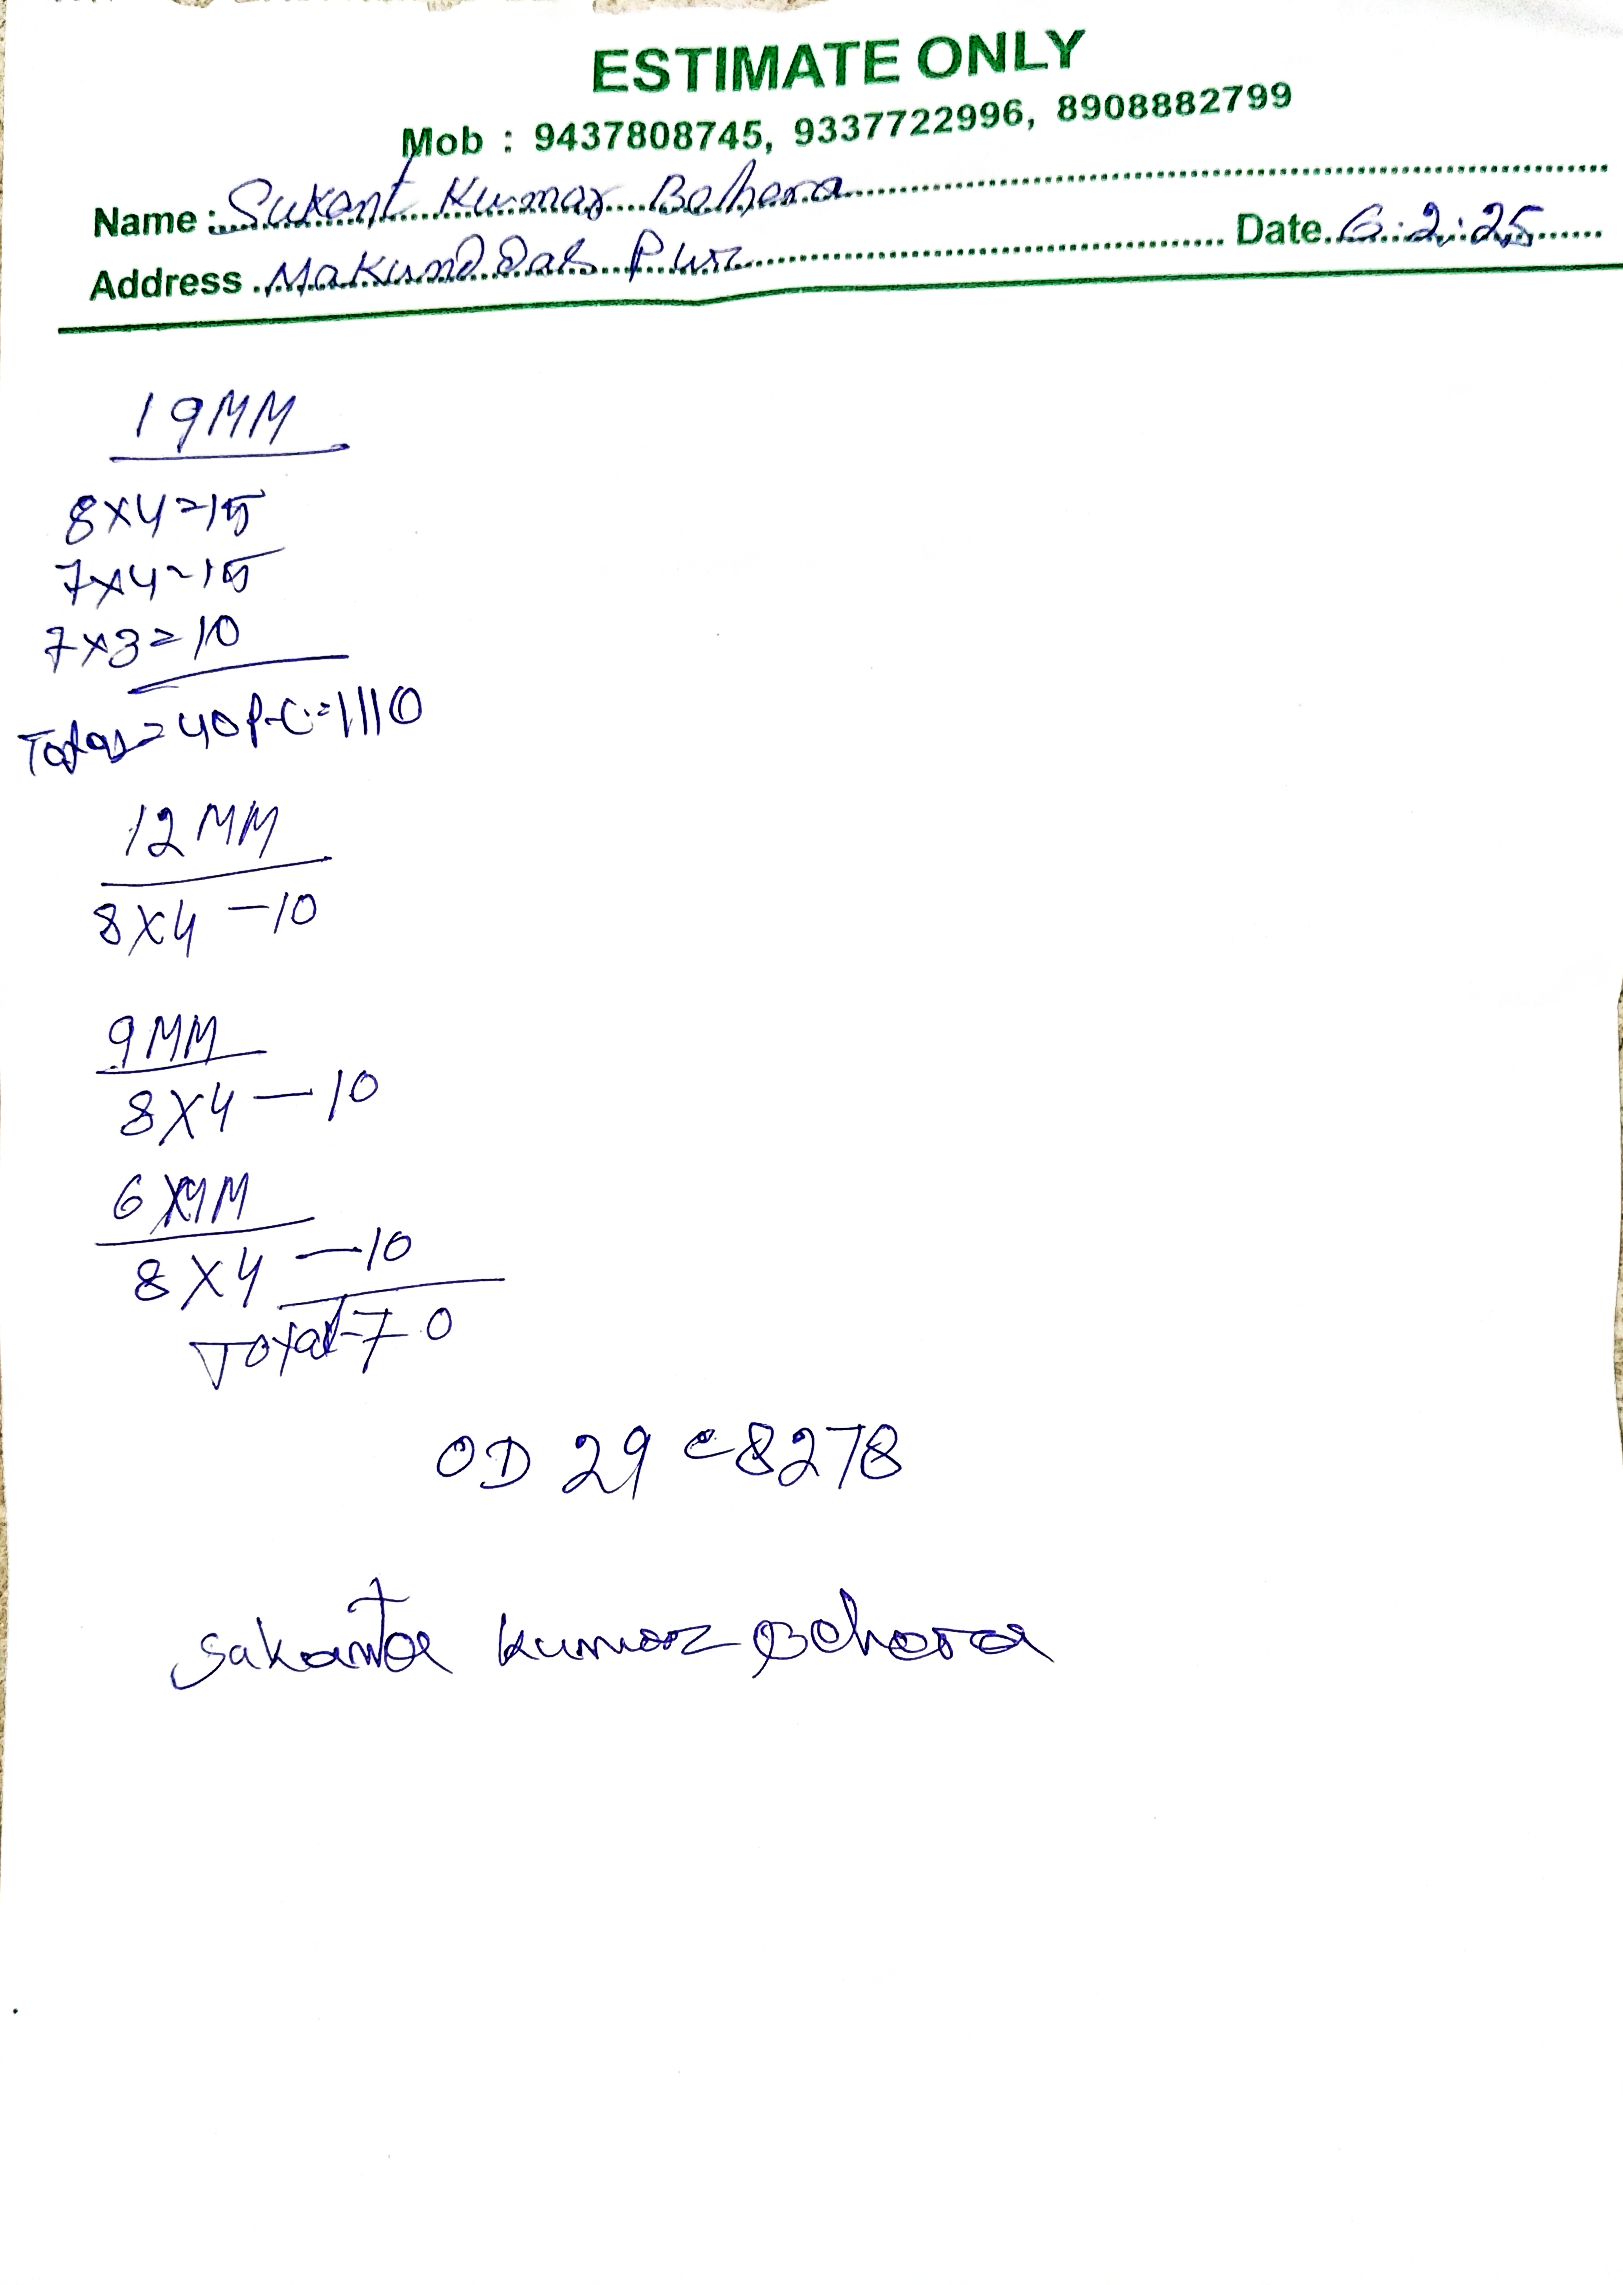 ESTIMATE ONLY
Mob : 9437808745, 9337722996, 8908882799
Name : Sukant Kumar Behera
Address Makund Das Pur Date 6:2:25
19MM
8x4=15
7x4=15
7x3=10
Total=40P.C.=1110
12MM
8x4 -10
9MM
8x4 -10
6 MM
8x4 -10
Total-70
OD 29 C 8278
Sakanta kumar Behera